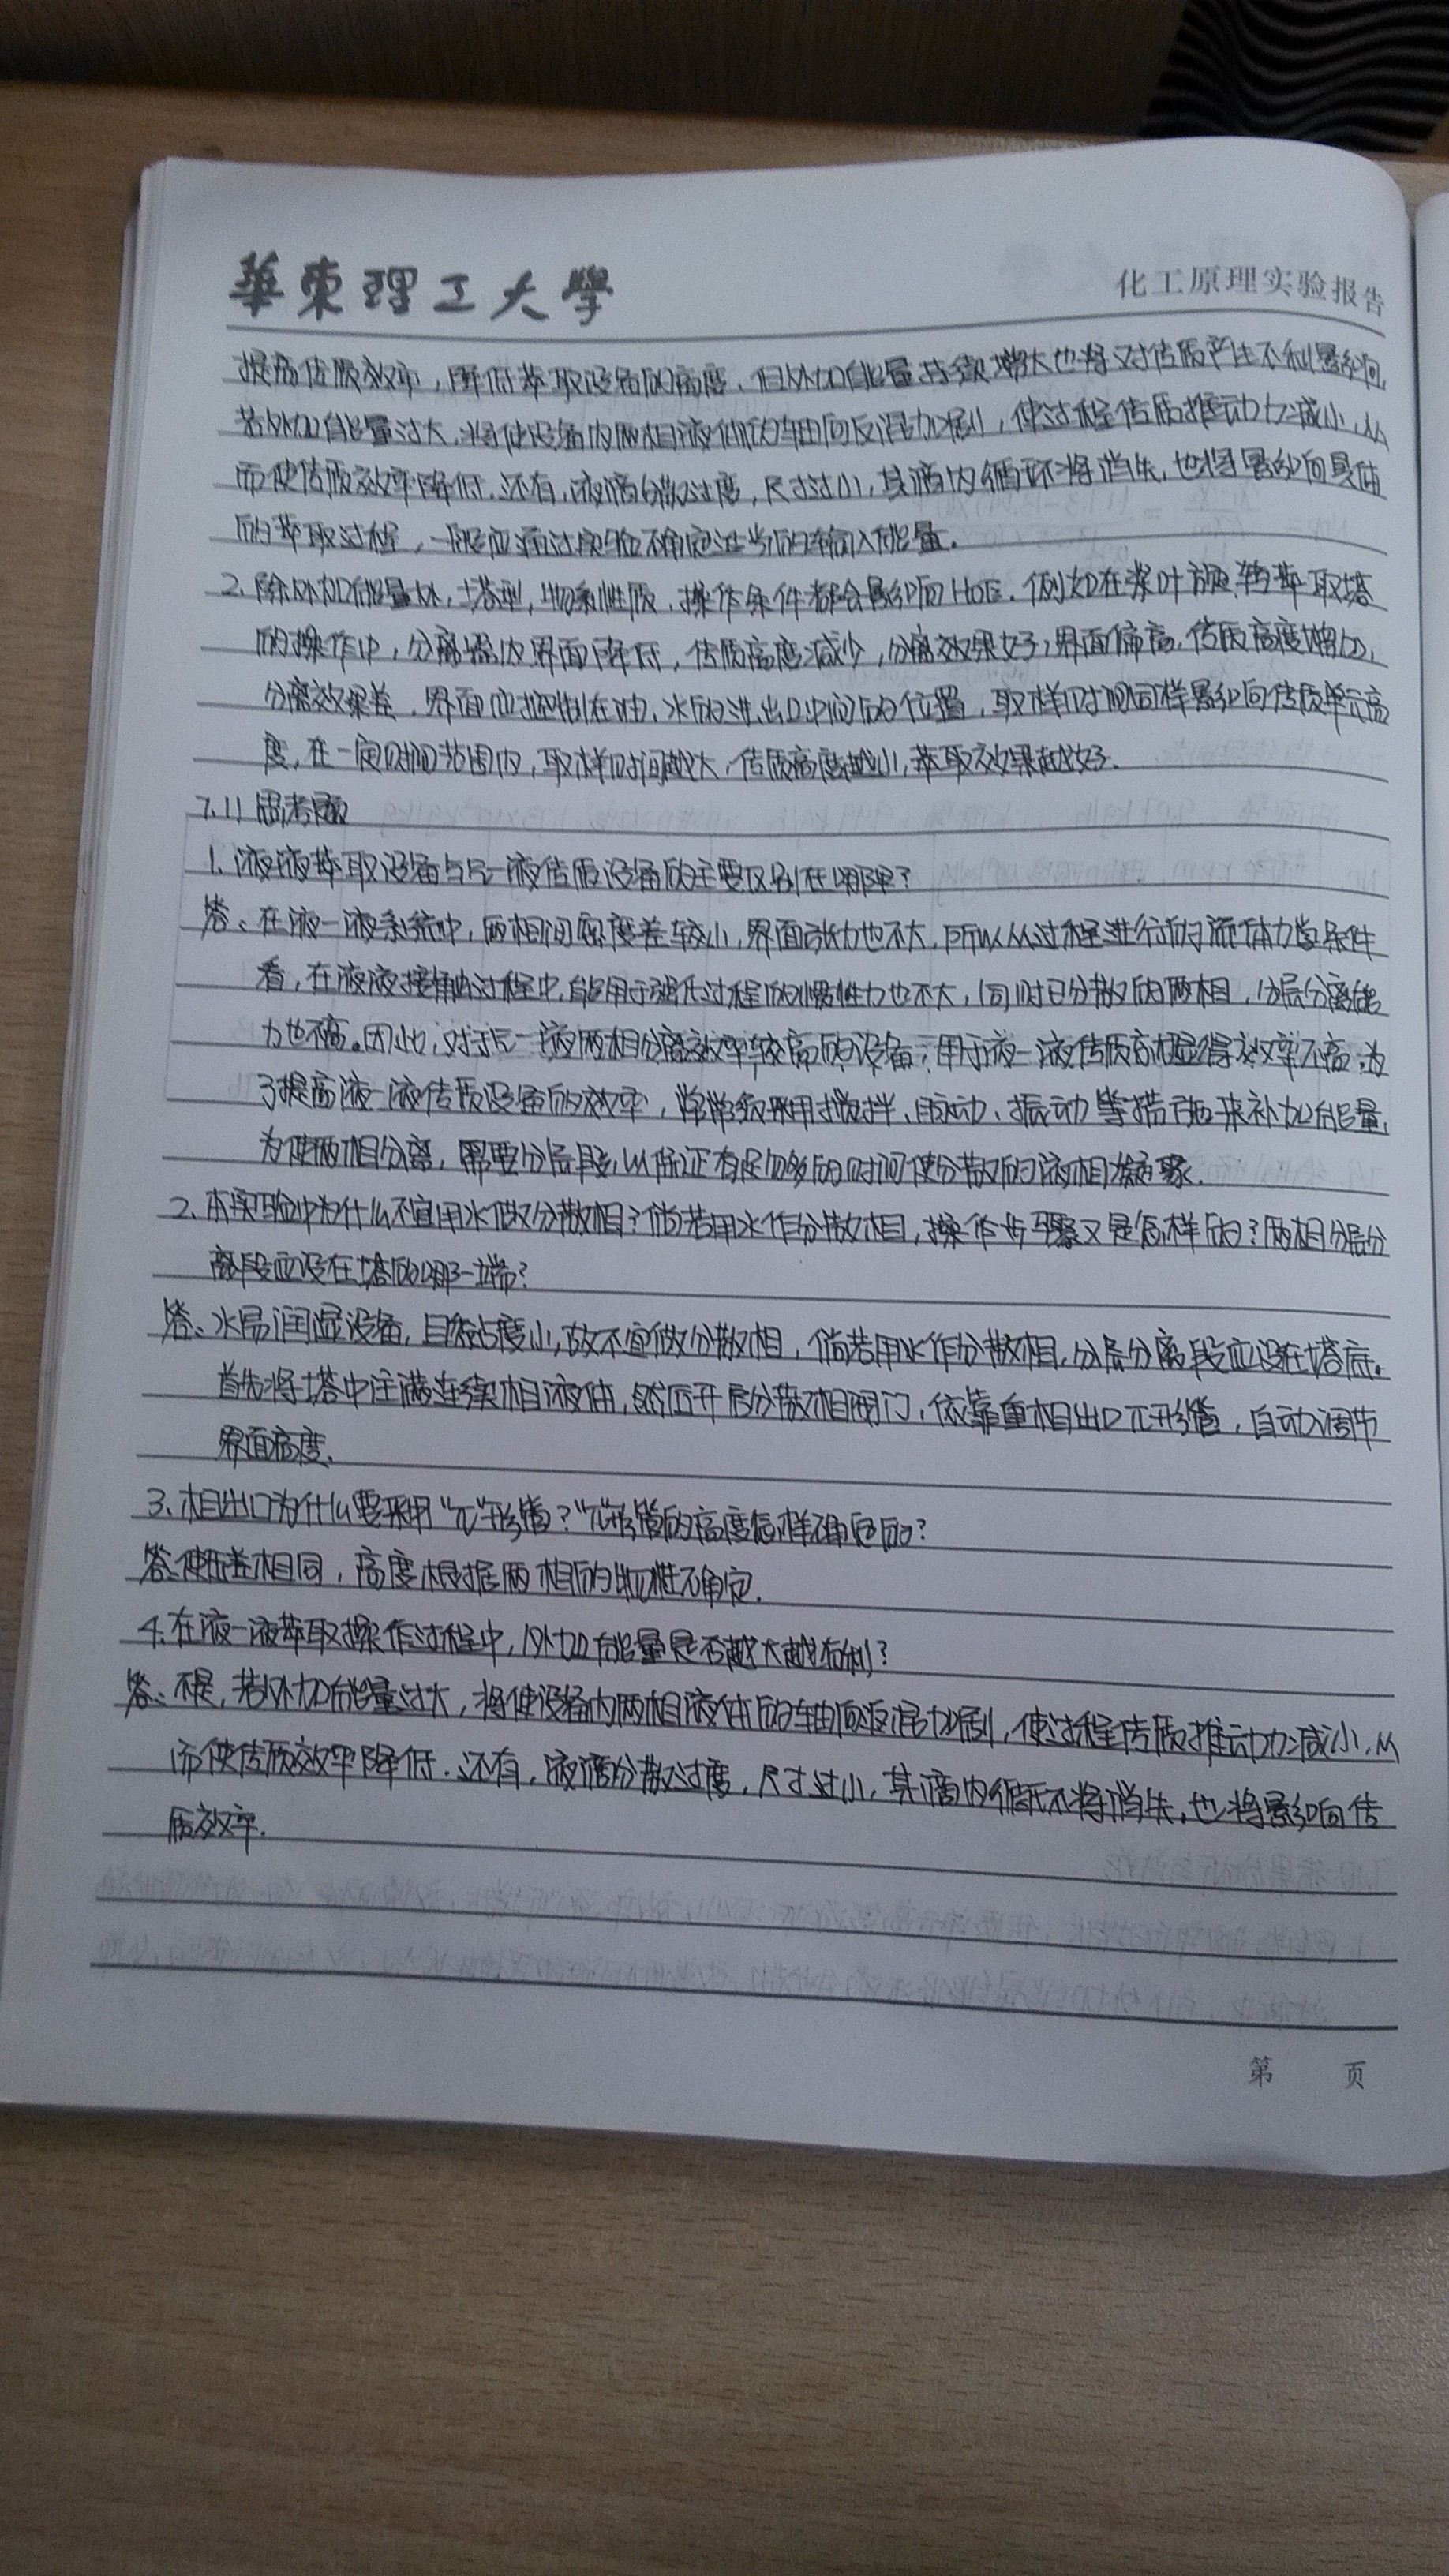 華東理工大學
化工原理实验报告
提高传质效率，降低萃取设备的高度，但外加能量持续增大也将对传质产生不利影响
若外加能量过大，将使设备内两相液体的轴向反混加剧，使过程传质推动力减小，从
而使传质效率降低．还有，液滴分散过度，尺寸过小，其滴内循环将消失，也将影响具体
的萃取过程，一般应通过实验确定适当的输入能量．
2．除外加能量外，塔型，物系性质，操作条件都会影响HOE．例如在桨叶旋转萃取塔
的操作中，分离器内界面降低，传质高度减少，分离效果好；界面偏高，传质高度增加，
分离效果差．界面应控制在油、水的进出口中间的位置，取样时间同样影响传质单元高
度，在一定时间范围内，取样时间越大，传质高度越小，萃取效果越好．
7.11 思考题
1．液液萃取设备与气一液传质设备的主要区别在哪里？
答：在液一液系统中，两相间密度差较小，界面张力也不大，所以从过程进行的流体力学条件
看，在液液接触过程中，能用于强化过程的惯性力也不大，同时已分散的两相，分层分离能
力也不高。因此，对于气一液两相分离效率较高的设备，用于液一液传质就显得效率不高，为
了提高液一液传质设备的效率，常常采用搅拌、脉动、振动等措施来补加能量，
为使两相分离，需要分层段，以保证有足够的时间使分散的液相凝聚．
2．本实验中为什么不宜用水做分散相？倘若用水作分散相，操作步骤又是怎样的？两相分层分
离段应设在塔的哪一端？
答：水易润湿设备，且黏度小，故不宜做分散相，倘若用水作分散相，分层分离段应设在塔底。
首先将塔中注满连续相液体，然后开启分散相阀门，依靠重相出口π形管，自动调节
界面高度．
3、相出口为什么要采用“π”形管？“π”形管的高度怎样确定的？
答：使压差相同，高度根据两相的物性确定．
4．在液一液萃取操作过程中，外加能量是否越大越有利？
答：不是，若外加能量过大，将使设备内两相液体的轴向返混加剧，使过程传质推动力减小，从
而使传质效率降低．还有，液滴分散过度，尺寸过小，其滴内循环将消失，也将影响传
质效率．
第 页